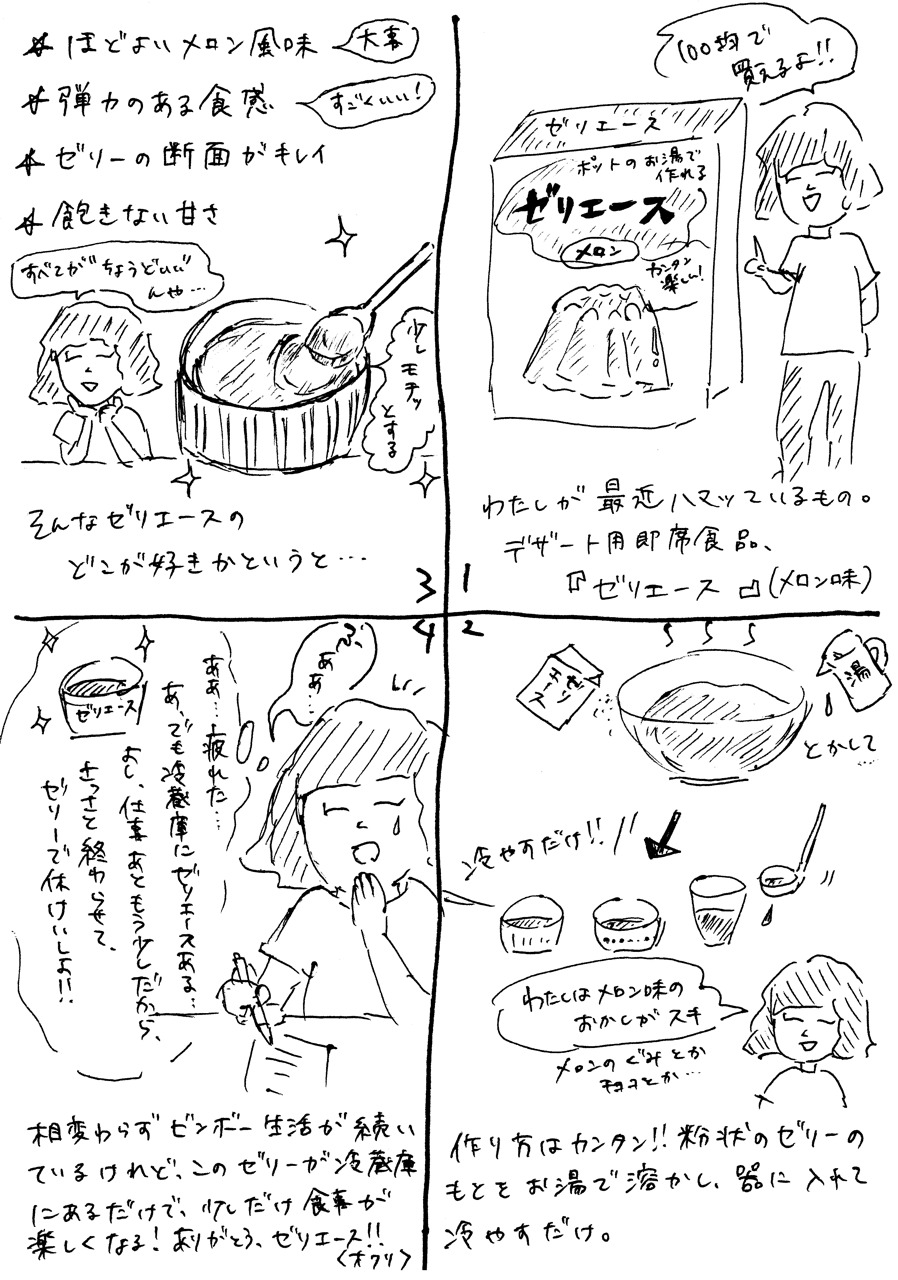 100均で
買えるよ!!
ゼリエース
ポットのお湯で
作れる
ゼリエース
メロン
カンタン
楽しい!
わたしが最近ハマッているもの。
デザート用即席食品、
『ゼリエース』(メロン味)
1
2
ゼリ
エース
湯
とかして
…
冷やすだけ!!
わたしはメロン味の
おかしがスキ
メロンのぐみとか
チョコとか…
作り方はカンタン!!粉状のゼリーの
もとをお湯で溶かし、器に入れて
冷やすだけ。
* ほどよいメロン風味
大事
* 弾力のある食感
すごくいい!
* ゼリーの断面がキレイ
* 飽きない甘さ
すべてが"ちょうどいい"
んや…
少しモチッ
とする
そんなゼリエースの
どこが好きかというと…
3
4
ふぁ
ぁぁ…
ああ…疲れた…
あ、でも冷蔵庫にゼリエースある…
よし、仕事あともう少しだから、
さっさと終わらせて、
ゼリーで休けいしよ!!
ゼリエース
相変わらずビンボー生活が続い
ているけれど、このゼリーが冷蔵庫
にあるだけで、少しだけ食事が
楽しくなる!ありがとう、ゼリエース!!
<オワリ>